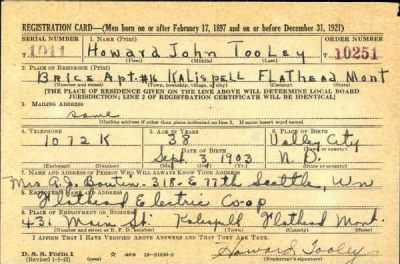 REGISTRATION CARD—(Men born on or after February 17, 1897 and on or before December 31, 1921)
SERIAL NUMBER 1. NAME (Print) ORDER NUMBER
1011 Howard John Tooley 10251
(First) (Middle) (Last)
2. PLACE OF RESIDENCE (Print)
Brice Apt. #6 Kalispell Flathead Mont
(Number and street) (Town, township, village, or city) (County) (State)
[THE PLACE OF RESIDENCE GIVEN ON THE LINE ABOVE WILL DETERMINE LOCAL BOARD
JURISDICTION; LINE 2 OF REGISTRATION CERTIFICATE WILL BE IDENTICAL]
3. MAILING ADDRESS
same
[Mailing address if other than place indicated on line 2. If same insert word same]
4. TELEPHONE 5. AGE IN YEARS 6. PLACE OF BIRTH
1072K 38 Valley City
DATE OF BIRTH
Sept. 3, 1903 N.D.
(Exchange) (Number) (Mo.) (Day) (Yr.) (State or country)
7. NAME AND ADDRESS OF PERSON WHO WILL ALWAYS KNOW YOUR ADDRESS
Mrs A.J. Boutin - 318 - E 77th Seattle, Wn
8. EMPLOYER'S NAME AND ADDRESS
Flathead Electric Co-op
9. PLACE OF EMPLOYMENT OR BUSINESS
431 Main St. Kalispell Flathead Mont.
(Number and street or R. F. D. number) (Town) (County) (State)
I AFFIRM THAT I HAVE VERIFIED ABOVE ANSWERS AND THAT THEY ARE TRUE.
D. S. S. Form 1
(Revised 1-5-42) (over) Howard Tooley